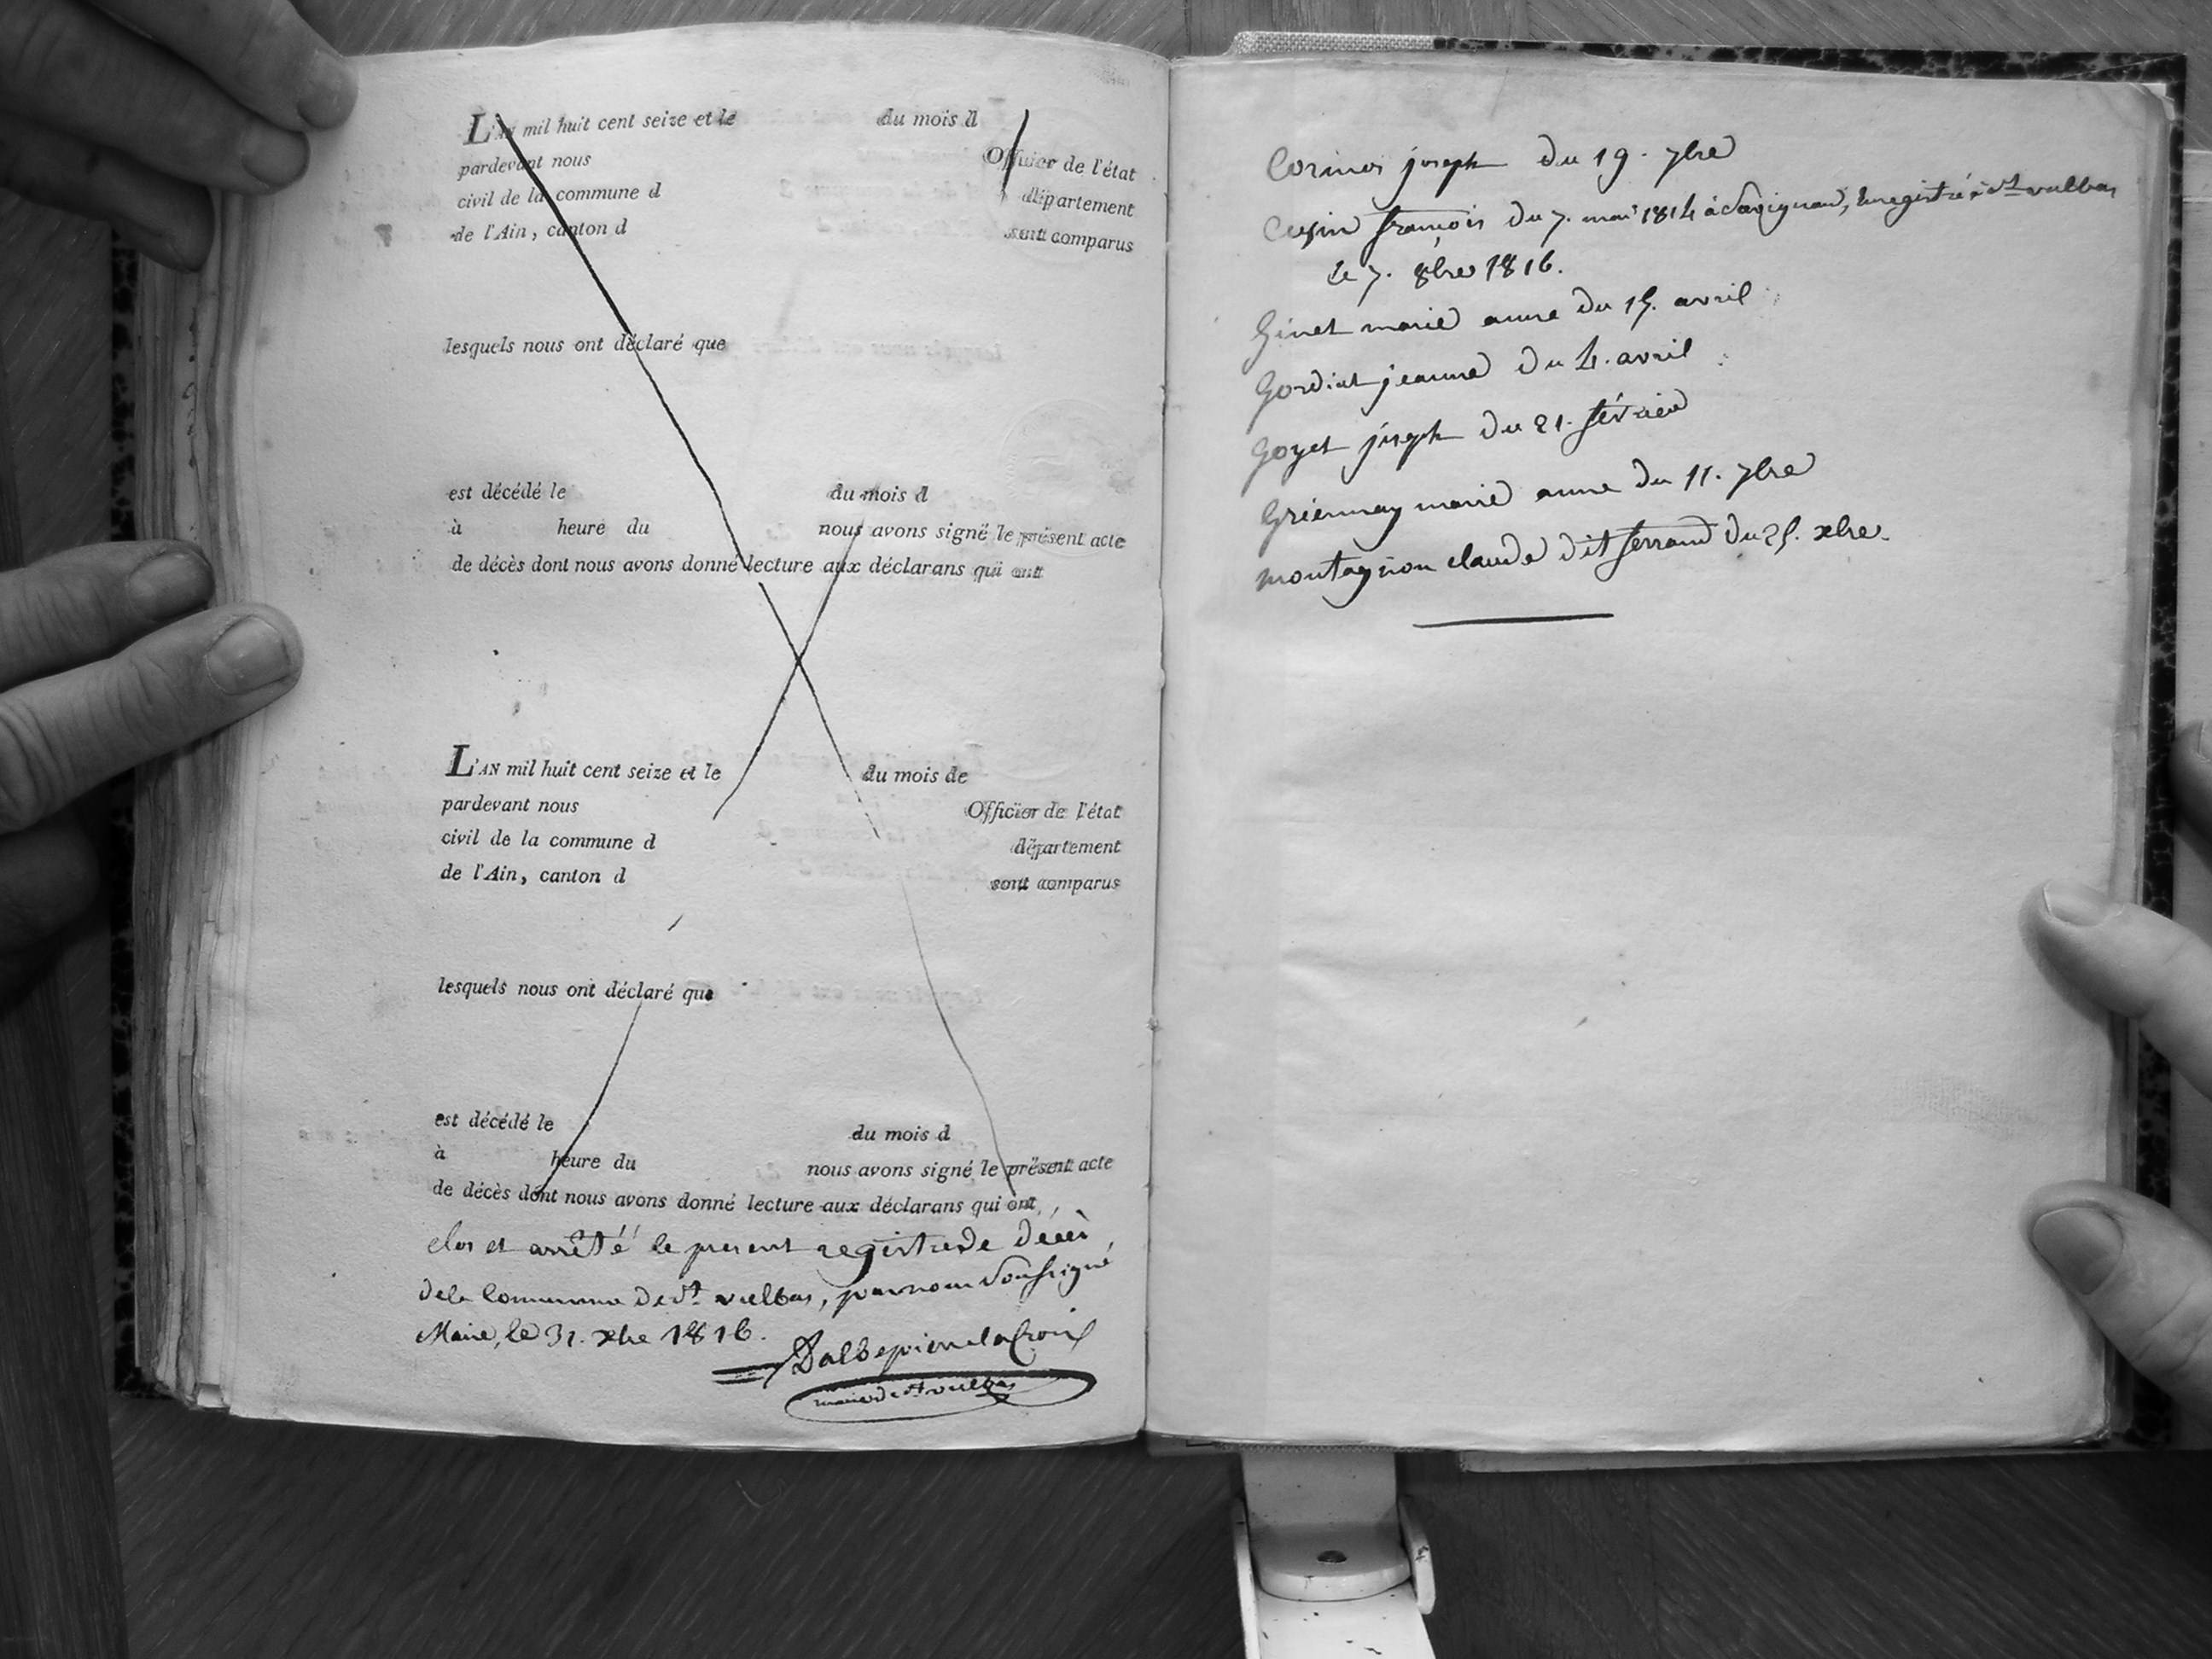 L'AN mil huit cent seize et le du mois d
pardevant nous Officier de l'état
civil de la commune d département
de l'Ain, canton d sont comparus
lesquels nous ont déclaré que
est décédé le du mois d
à heure du nous avons signé le présent acte
de décès dont nous avons donné lecture aux déclarans qui ont
L'AN mil huit cent seize et le du mois de
pardevant nous Officier de l'état
civil de la commune d département
de l'Ain, canton d sont comparus
lesquels nous ont déclaré que
est décédé le du mois d
à heure du nous avons signé le présent acte
de décès dont nous avons donné lecture aux déclarans qui ont
clos et arrêté le present registre de décès
de la Commune de St. vulbas, par nous soussigné
Maire, le 31. xbre 1816.
maire de St vulbas
Corinos joseph du 19. 7bre
Cusin françois du 7. mai 1814 à enregistré à St vulbas
le 7. 8bre 1816.
Ginet marie anne du 15. avril
Gordiat jeanne du 4. avril
Goyet joseph du 21. février
Griennay marie anne du 11. 7bre
montagnon claude dit ferrand du 25. xbre.